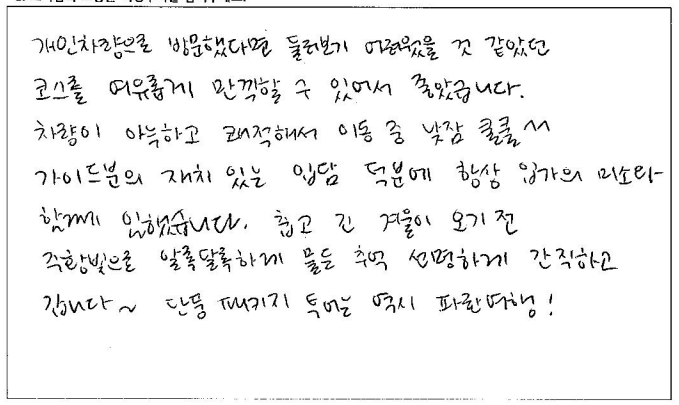 개인차량으로 방문했다면 둘러보기 어려웠을 것 같았던
코스를 여유롭게 만끽할 수 있어서 좋았습니다.
차량이 아늑하고 쾌적해서 이동 중 낮잠 쿨쿨~~
가이드분의 재치 있는 입담 덕분에 항상 입가의 미소와
함께 임했습니다. 춥고 긴 겨울이 오기 전
주황빛으로 알록달록하게 물든 추억 선명하게 간직하고
갑니다~ 단풍 패키지 투어는 역시 파란여행!